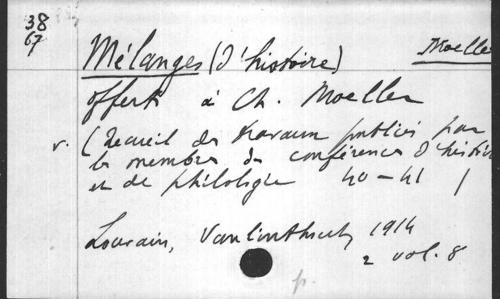 38
67
Mélanges (d'histoire) Moeller
offerts à Ch. Moeller
v. (Recueil de travaux publiés par
les membres des conférences d'histoire
et de philologie 40-41 )
Louvain, Vanlinthout, 1914
2 vol. 8